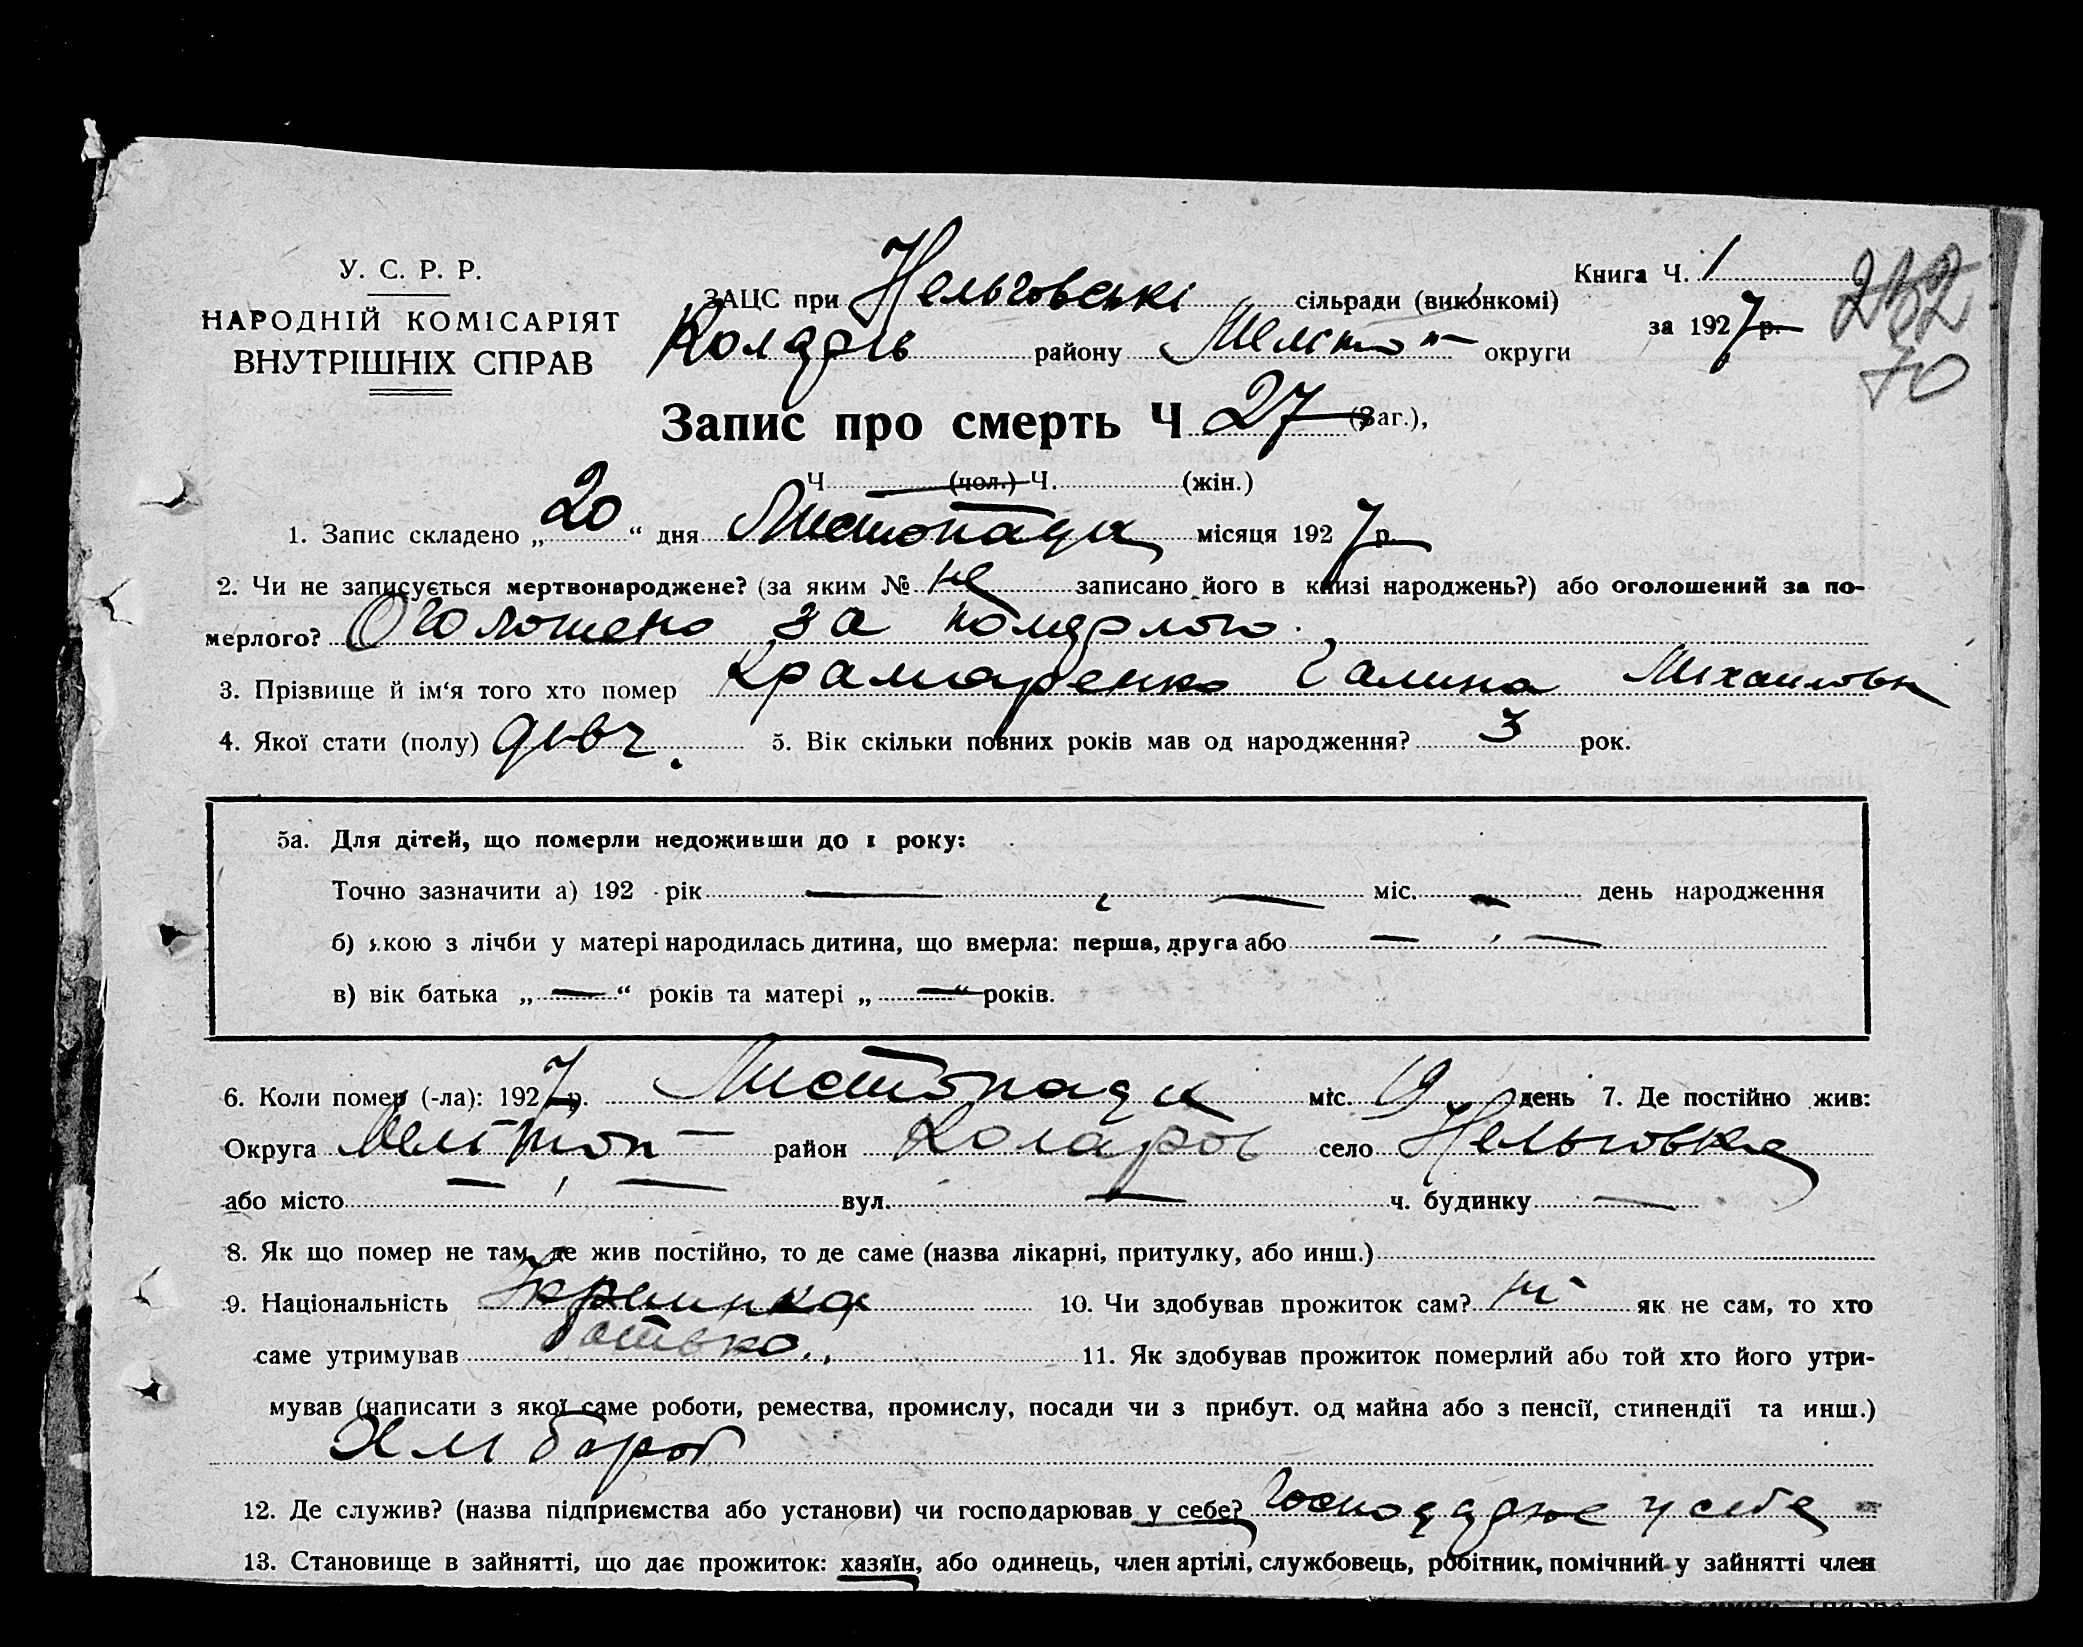 У. С. Р. Р.
НАРОДНІЙ КОМІСАРІЯТ
ВНУТРІШНІХ СПРАВ
Книга Ч. 1
за 1927 р.
232
70
ЗАЦС при Нельговські сільради (виконкомі)
району Меліт округи
Запис про смерть Ч 27 (Заг.),
Ч. — (чол.) Ч. (жін.)
1. Запис складено „20“ дня Листопада місяця 1927 р.
2. Чи не записується мертвонароджене? (за яким № не записано його в книзі народжень?) або оголошений за по-
мерлого? Оголошено за померлого.
3. Прізвище й ім'я того хто помер Крамаренко Галина Михаиловн
4. Якої стати (полу) дівч. 5. Вік скільки повних років мав од народження? 3 рок.
5а. Для дітей, що померли недоживши до 1 року:
Точно зазначити а) 192 рік — , — міс. — день народження
б) якою з лічби у матері народилась дитина, що вмерла: перша, друга або — , —
в) вік батька „—“ років та матері „—“ років.
6. Коли помер (-ла): 1927 р. Листопада міс. 19 день 7. Де постійно жив:
Округа Меліттоп — район Коларов село Нельговка
або місто — , — вул. — ч. будинку —
8. Як що помер не там, де жив постійно, то де саме (назва лікарні, притулку, або инш.)
9. Національність 10. Чи здобував прожиток сам? ні як не сам, то хто
саме утримував батько. 11. Як здобував прожиток померлий або той хто його утри-
мував (написати з якої саме роботи, ремества, промислу, посади чи з прибут. од майна або з пенсії, стипендії та инш.)
Хлібороб
12. Де служив? (назва підприємства або установи) чи господарював у себе? Господарює у себе
13. Становище в зайнятті, що дає прожиток: хазяїн, або одинець, член артілі, службовець, робітник, помічний у зайнятті член